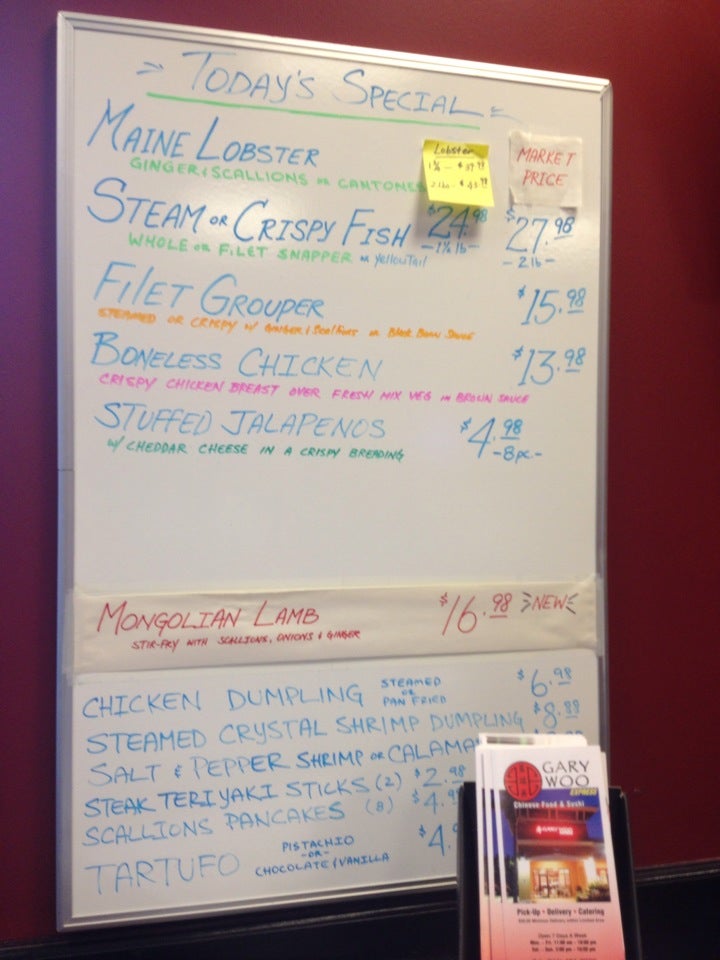 TODAY'S SPECIAL
MAINE LOBSTER
GINGER & SCALLIONS OR
Lobster
2 lb -
MARKET
PRICE
STEAM OR CRISPY FISH $24.98 $27.98
-1¼ lb- -2 lb-
WHOLE OR FILET SNAPPER OR YellowTail
FILET GROUPER $15.98
STEAMED OR CRISPY W/ GINGER & Scallions OR Black Bean Sauce
BONELESS CHICKEN $13.98
CRISPY CHICKEN BREAST OVER FRESH MIX VEG IN BROWN SAUCE
STUFFED JALAPENOS $4.98
W/ CHEDDAR CHEESE IN A CRISPY BREADING -8pc.-
MONGOLIAN LAMB $16.98 NEW
STIR-FRY WITH SCALLIONS, ONIONS & GINGER
CHICKEN DUMPLING STEAMED OR PAN FRIED $6.98
STEAMED CRYSTAL SHRIMP DUMPLING $8.88
SALT & PEPPER SHRIMP OR
STEAK TERIYAKI STICKS (2) $2.98
SCALLIONS PANCAKES (8) $4.9
TARTUFO PISTACHIO -OR- CHOCOLATE/VANILLA $4.
GARY
WOO
EXPRESS
Chinese Food & Sushi
Pick-Up • Delivery • Catering
Open 7 Days A Week